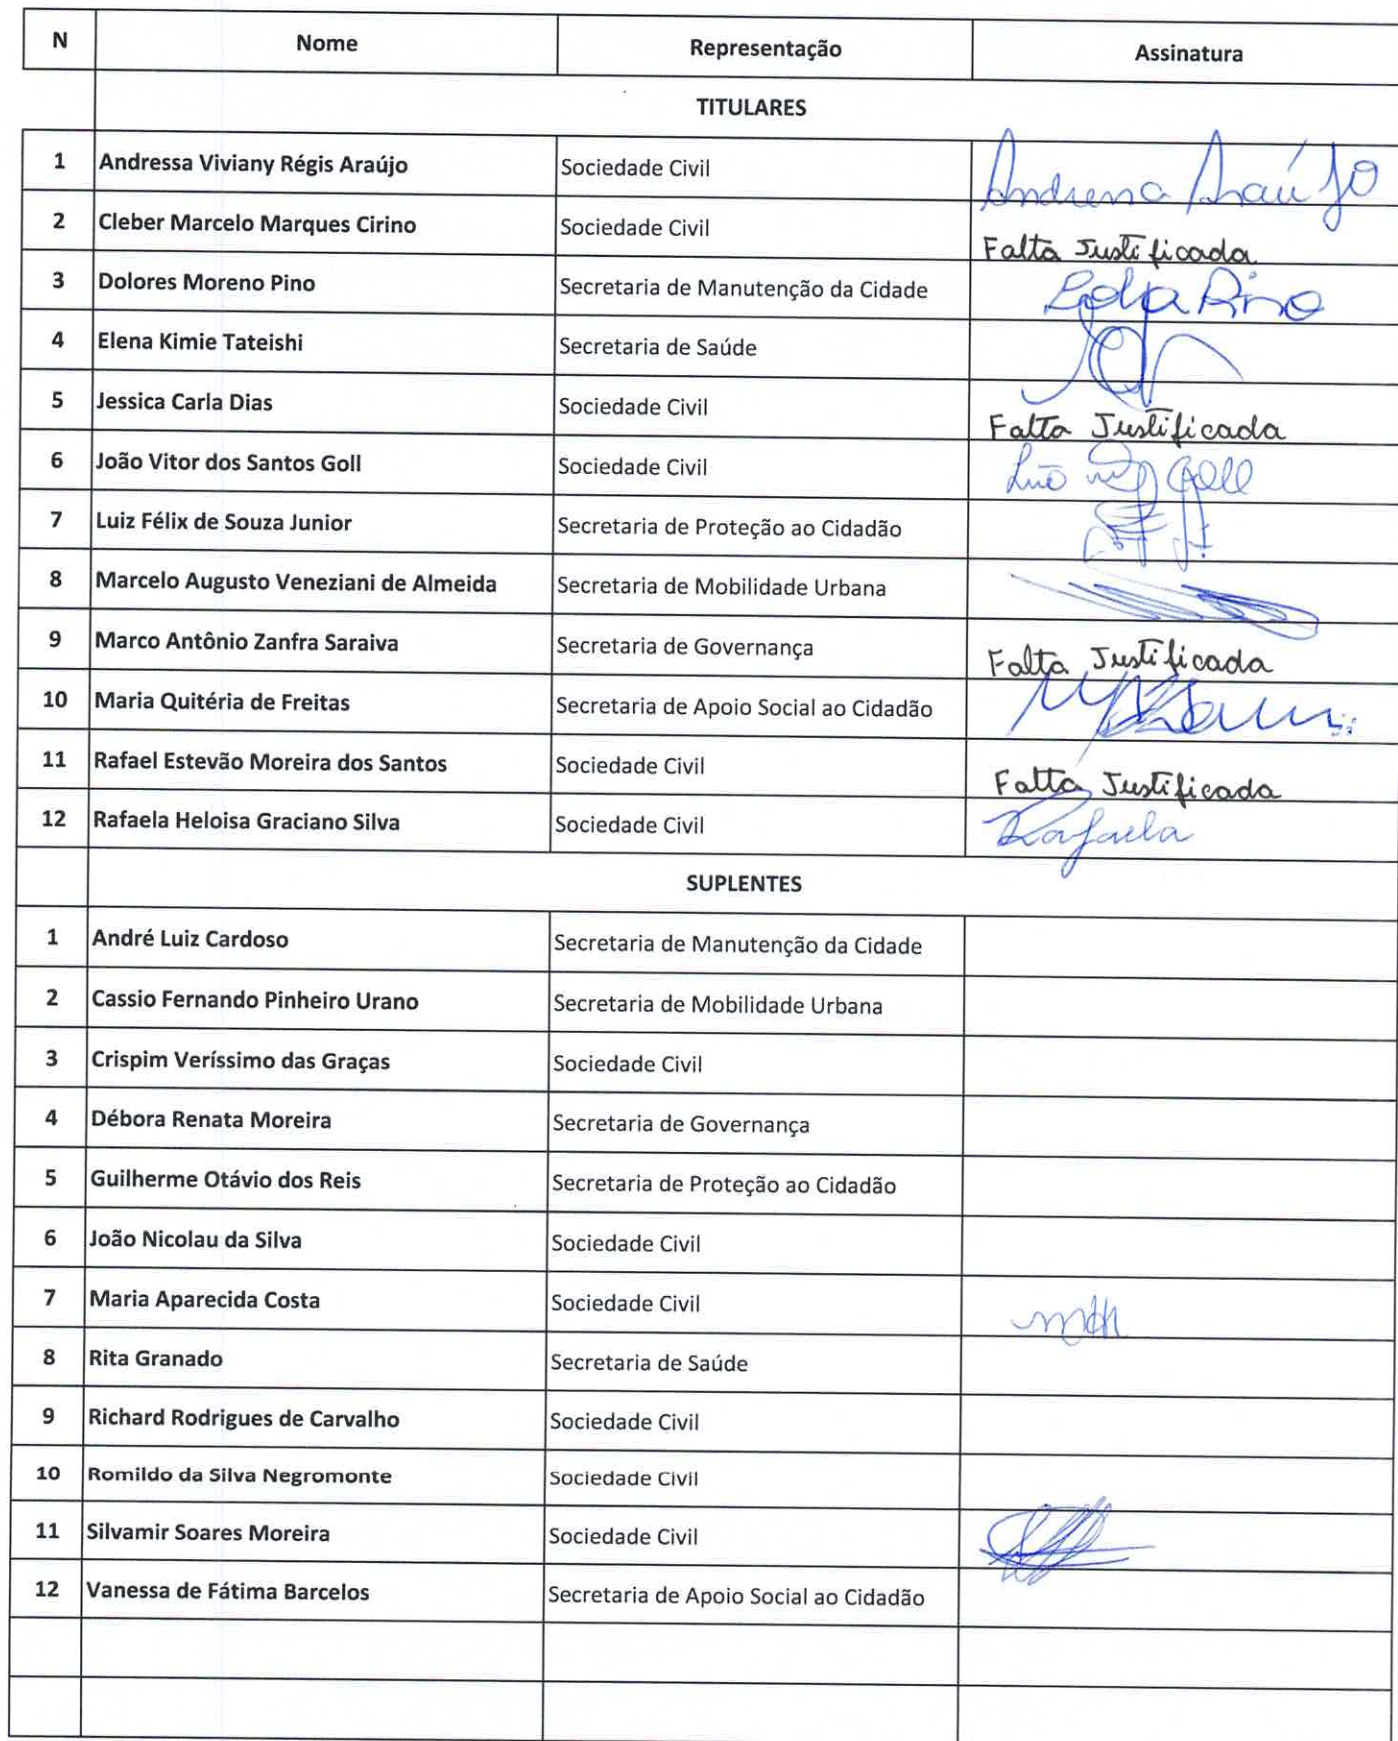 N Nome Representação Assinatura
TITULARES
1 Andressa Viviany Régis Araújo Sociedade Civil Andressa Araújo
2 Cleber Marcelo Marques Cirino Sociedade Civil Falta Justificada
3 Dolores Moreno Pino Secretaria de Manutenção da Cidade Pino
4 Elena Kimie Tateishi Secretaria de Saúde
5 Jessica Carla Dias Sociedade Civil Falta Justificada
6 João Vitor dos Santos Goll Sociedade Civil Goll
7 Luiz Félix de Souza Junior Secretaria de Proteção ao Cidadão
8 Marcelo Augusto Veneziani de Almeida Secretaria de Mobilidade Urbana
9 Marco Antônio Zanfra Saraiva Secretaria de Governança Falta Justificada
10 Maria Quitéria de Freitas Secretaria de Apoio Social ao Cidadão
11 Rafael Estevão Moreira dos Santos Sociedade Civil Falta Justificada
12 Rafaela Heloisa Graciano Silva Sociedade Civil Rafaela
SUPLENTES
1 André Luiz Cardoso Secretaria de Manutenção da Cidade
2 Cassio Fernando Pinheiro Urano Secretaria de Mobilidade Urbana
3 Crispim Veríssimo das Graças Sociedade Civil
4 Débora Renata Moreira Secretaria de Governança
5 Guilherme Otávio dos Reis Secretaria de Proteção ao Cidadão
6 João Nicolau da Silva Sociedade Civil
7 Maria Aparecida Costa Sociedade Civil
8 Rita Granado Secretaria de Saúde
9 Richard Rodrigues de Carvalho Sociedade Civil
10 Romildo da Silva Negromonte Sociedade Civil
11 Silvamir Soares Moreira Sociedade Civil
12 Vanessa de Fátima Barcelos Secretaria de Apoio Social ao Cidadão